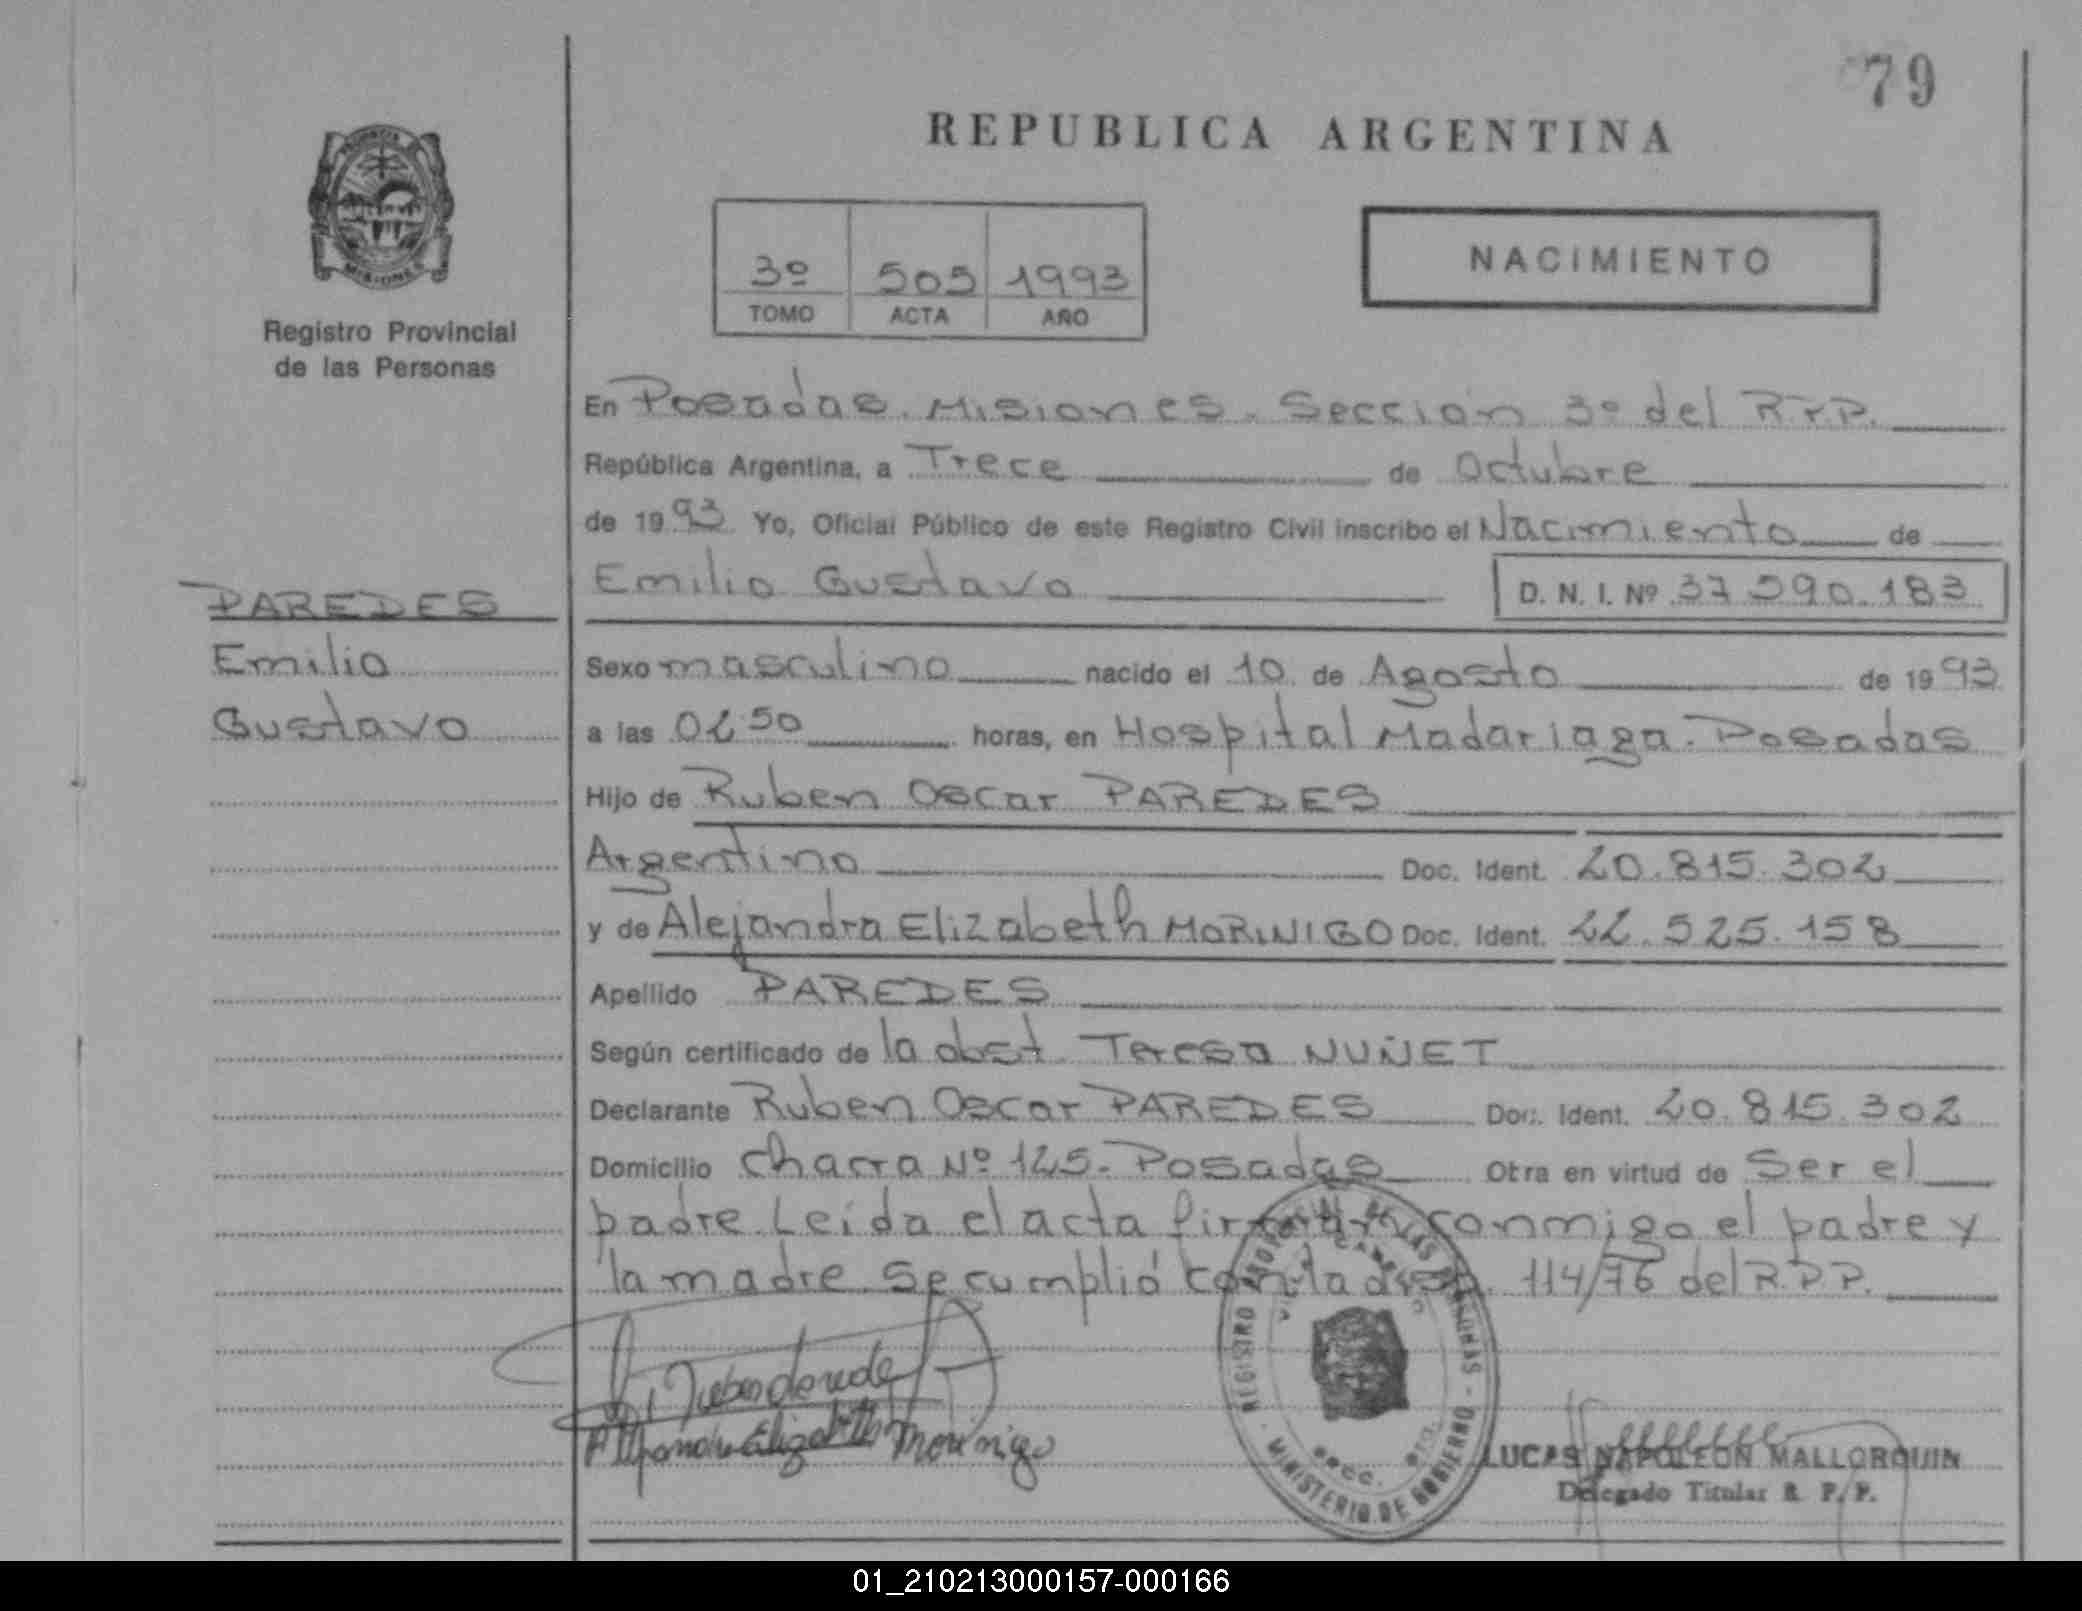 79
REPUBLICA ARGENTINA
3º 505 1993
TOMO ACTA AÑO
NACIMIENTO
MISIONES
Registro Provincial
de las Personas
En Posadas. Misiones. Sección 3º del R.P.P.
República Argentina, a Trece de Octubre
de 1993 Yo, Oficial Público de este Registro Civil inscribo el Nacimiento de
Emilio Gustavo D. N. I. Nº 37.590.183
PAREDES
Emilio
Gustavo
Sexo masculino nacido el 10 de Agosto de 1993
a las 02 50 horas, en Hospital Madariaga. Posadas
Hijo de Ruben Oscar PAREDES
Argentino Doc. Ident. 20.815.302
y de Alejandra Elizabeth MORINIGO Doc. Ident. 22.525.158
Apellido PAREDES
Según certificado de la obst. Teresa NUÑET
Declarante Ruben Oscar PAREDES Doc. Ident. 20.815.302
Domicilio chacra Nº 125. Posadas Otra en virtud de Ser el
padre. Leída el acta firman conmigo el padre y
la madre Se cumplió con la 114/76 del R.P.P.
Elizabeth Morinigo
REGISTRO DE LAS PERSONAS - MINISTERIO DE GOBIERNO
LUCAS NAPOLEON MALLORQUIN
Delegado Titular R. P. P.
01_210213000157-000166